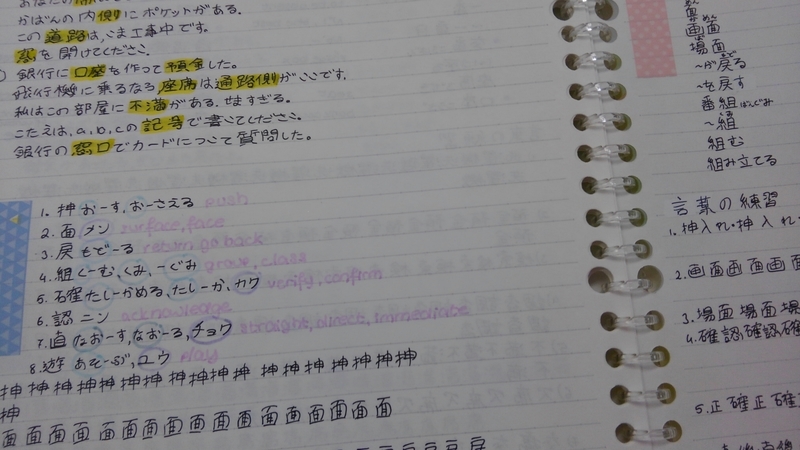 かばんの内側にポケットがある。
この道路は,いま工事中です。
窓を開けてください。
銀行に口座を作って預金した。
飛行機に乗るなら座席は通路側がいいです。
私はこの部屋に不満がある。せますぎる。
こたえは,a,b,cの記号で書いてください。
銀行の窓口でカードについて質問した。
1. 押 おーす,おーさえる push
2. 面 メン surface,face
3. 戻 もどーる return go back
4. 組 くーむ,くみ,ーぐみ group,class
5. 確 たしーかめる,たしーか,カク verify,confirm
6. 認 ニン acknowledge
7. 直 なおーす,なおーる,チョク straight,direct,immediate
8. 遊 あそーぶ,ユウ play
押押押押押押押押押押押押押押押押
押
面面面面面面面面面面面面面面面面面
画面
場面
〜が戻る
〜を戻す
番組 ばんぐみ
〜組
組む
組み立てる
言葉の練習
1. 押入れ・押入れ・
2. 画面画面画面
3. 場面場面場面
4. 確認確認確
5. 正確正確